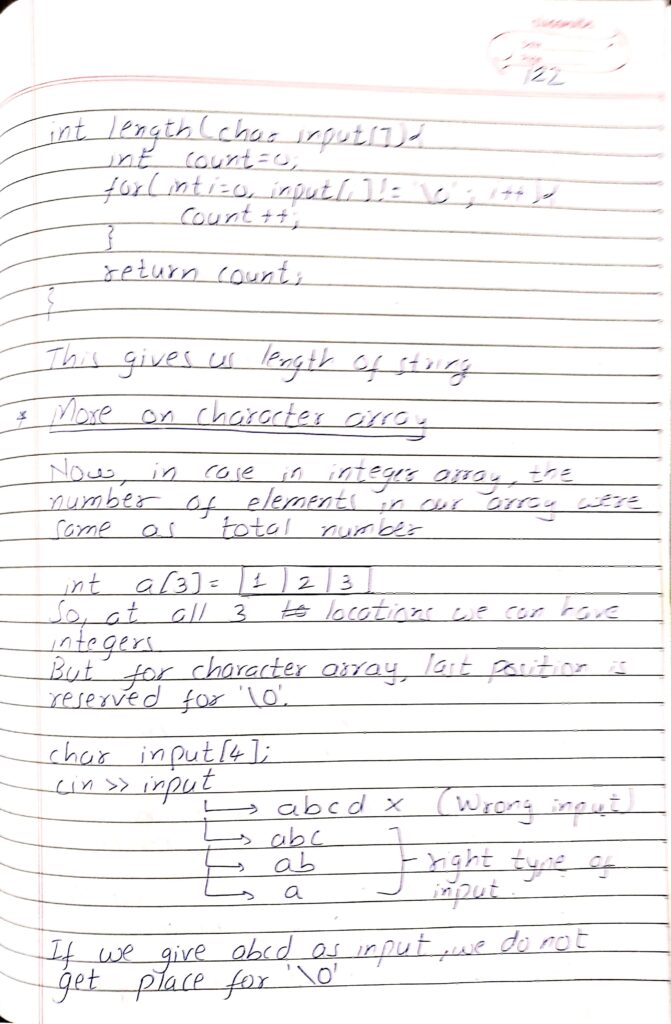 classmate
Date
Page
122
int length(char input[]){
int count=0;
for(int i=0; input[i]!= '\0'; i++){
count ++;
}
return count;
}
This gives us length of string
* More on character array
Now, in case in integer array, the
number of elements in our array were
same as total number
int a[3]= |1|2|3|
So, at all 3 locations we can have
integers
But for character array, last position is
reserved for '\0'.
char input[4];
cin >> input
→ abcd × (Wrong input)
→ abc
→ ab right type of
→ a input.
If we give abcd as input, we do not
get place for '\0'